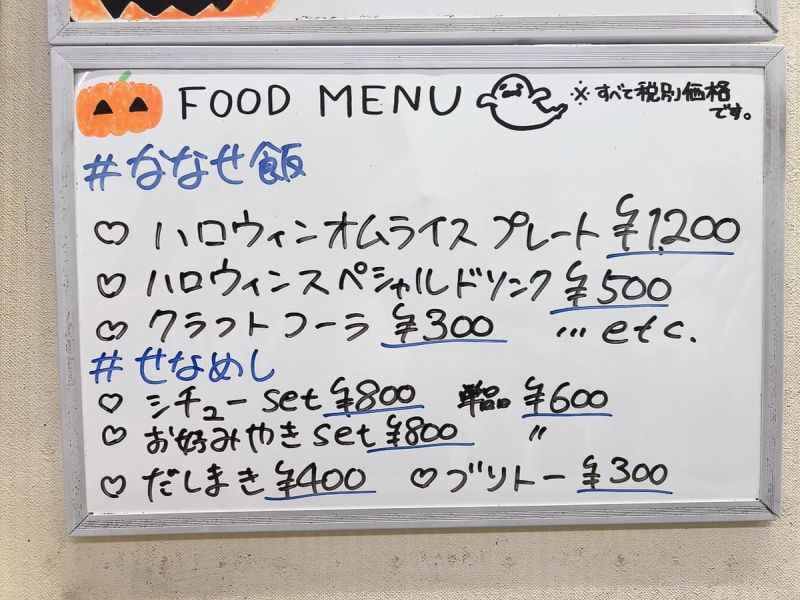 FOOD MENU ※すべて税別価格
です。
#ななせ飯
♡ ハロウィンオムライス プレート ¥1,200
♡ ハロウィンスペシャルドリンク ¥500
♡ クラフトコーラ ¥300 … etc.
#せなめし
♡ シチュー set ¥800 単品 ¥600
♡ お好みやき set ¥800 〃
♡ だしまき ¥400 ♡ ブリトー ¥300